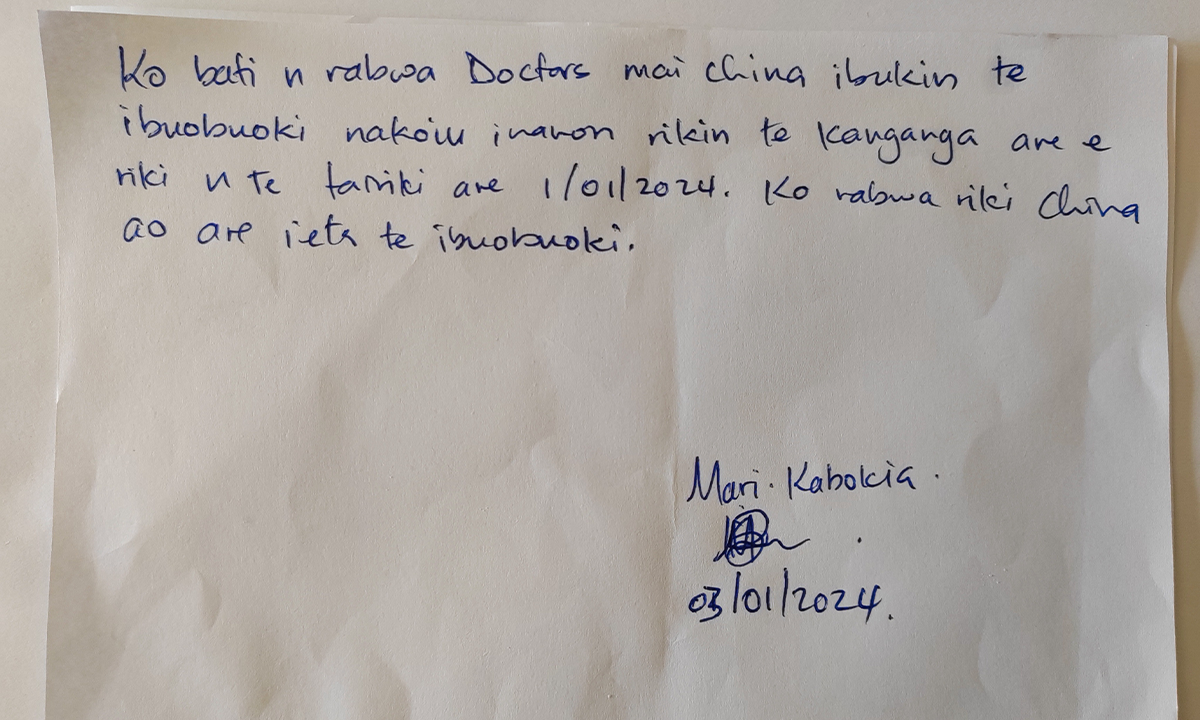 Ko bati n rabwa Doctors mai China ibukin te
ibuobuoki nakoiu inanon rikin te kanganga are e
riki n te tairiki are 1/01/2024. Ko rabwa riki China
ao are ieta te ibuobuoki.
Mari. Kabokia.
03/01/2024.